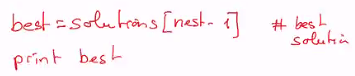 best = solutions [nest - 1] # best
solution
print best